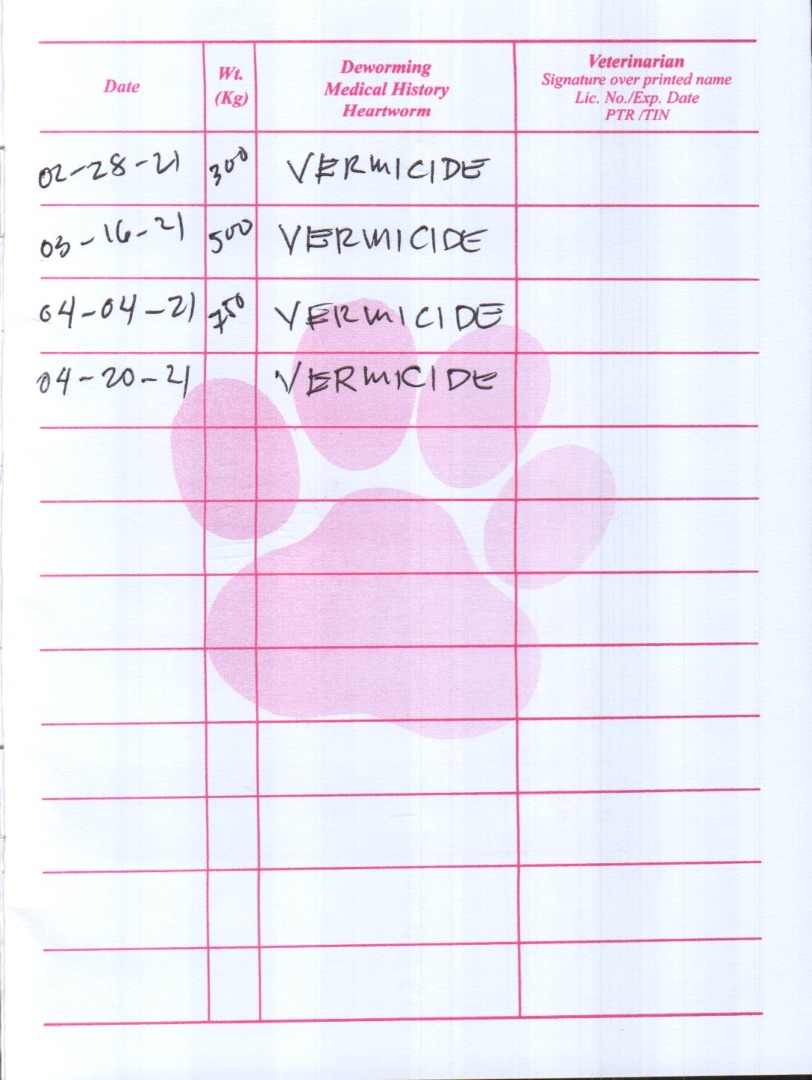 Date Wt. (Kg) Deworming Medical History Heartworm Veterinarian Signature over printed name Lic. No./Exp. Date PTR /TIN
02-28-21 300 VERMICIDE
03-16-21 500 VERMICIDE
04-04-21 750 VERMICIDE
04-20-21 VERMICIDE